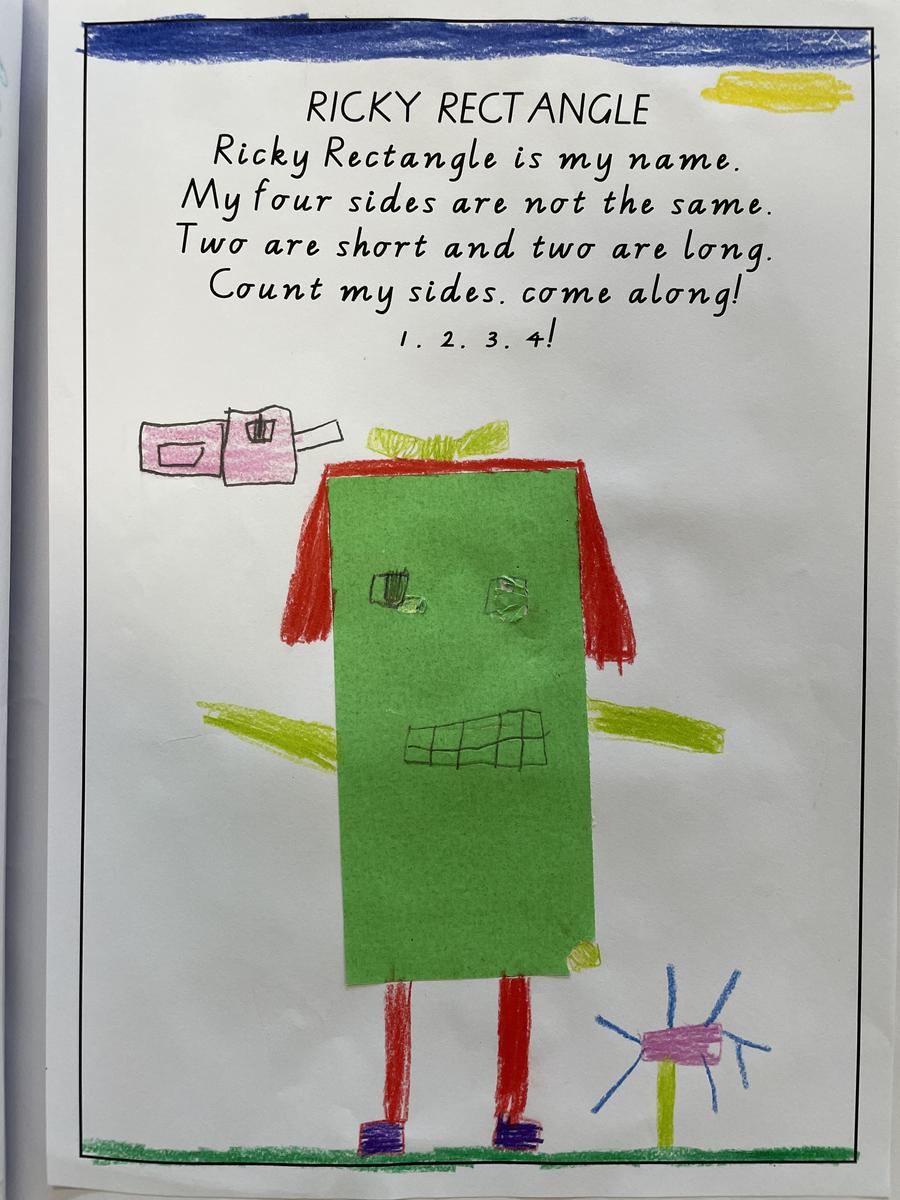 RICKY RECTANGLE
Ricky Rectangle is my name.
My four sides are not the same.
Two are short and two are long.
Count my sides. come along!
1. 2. 3. 4!